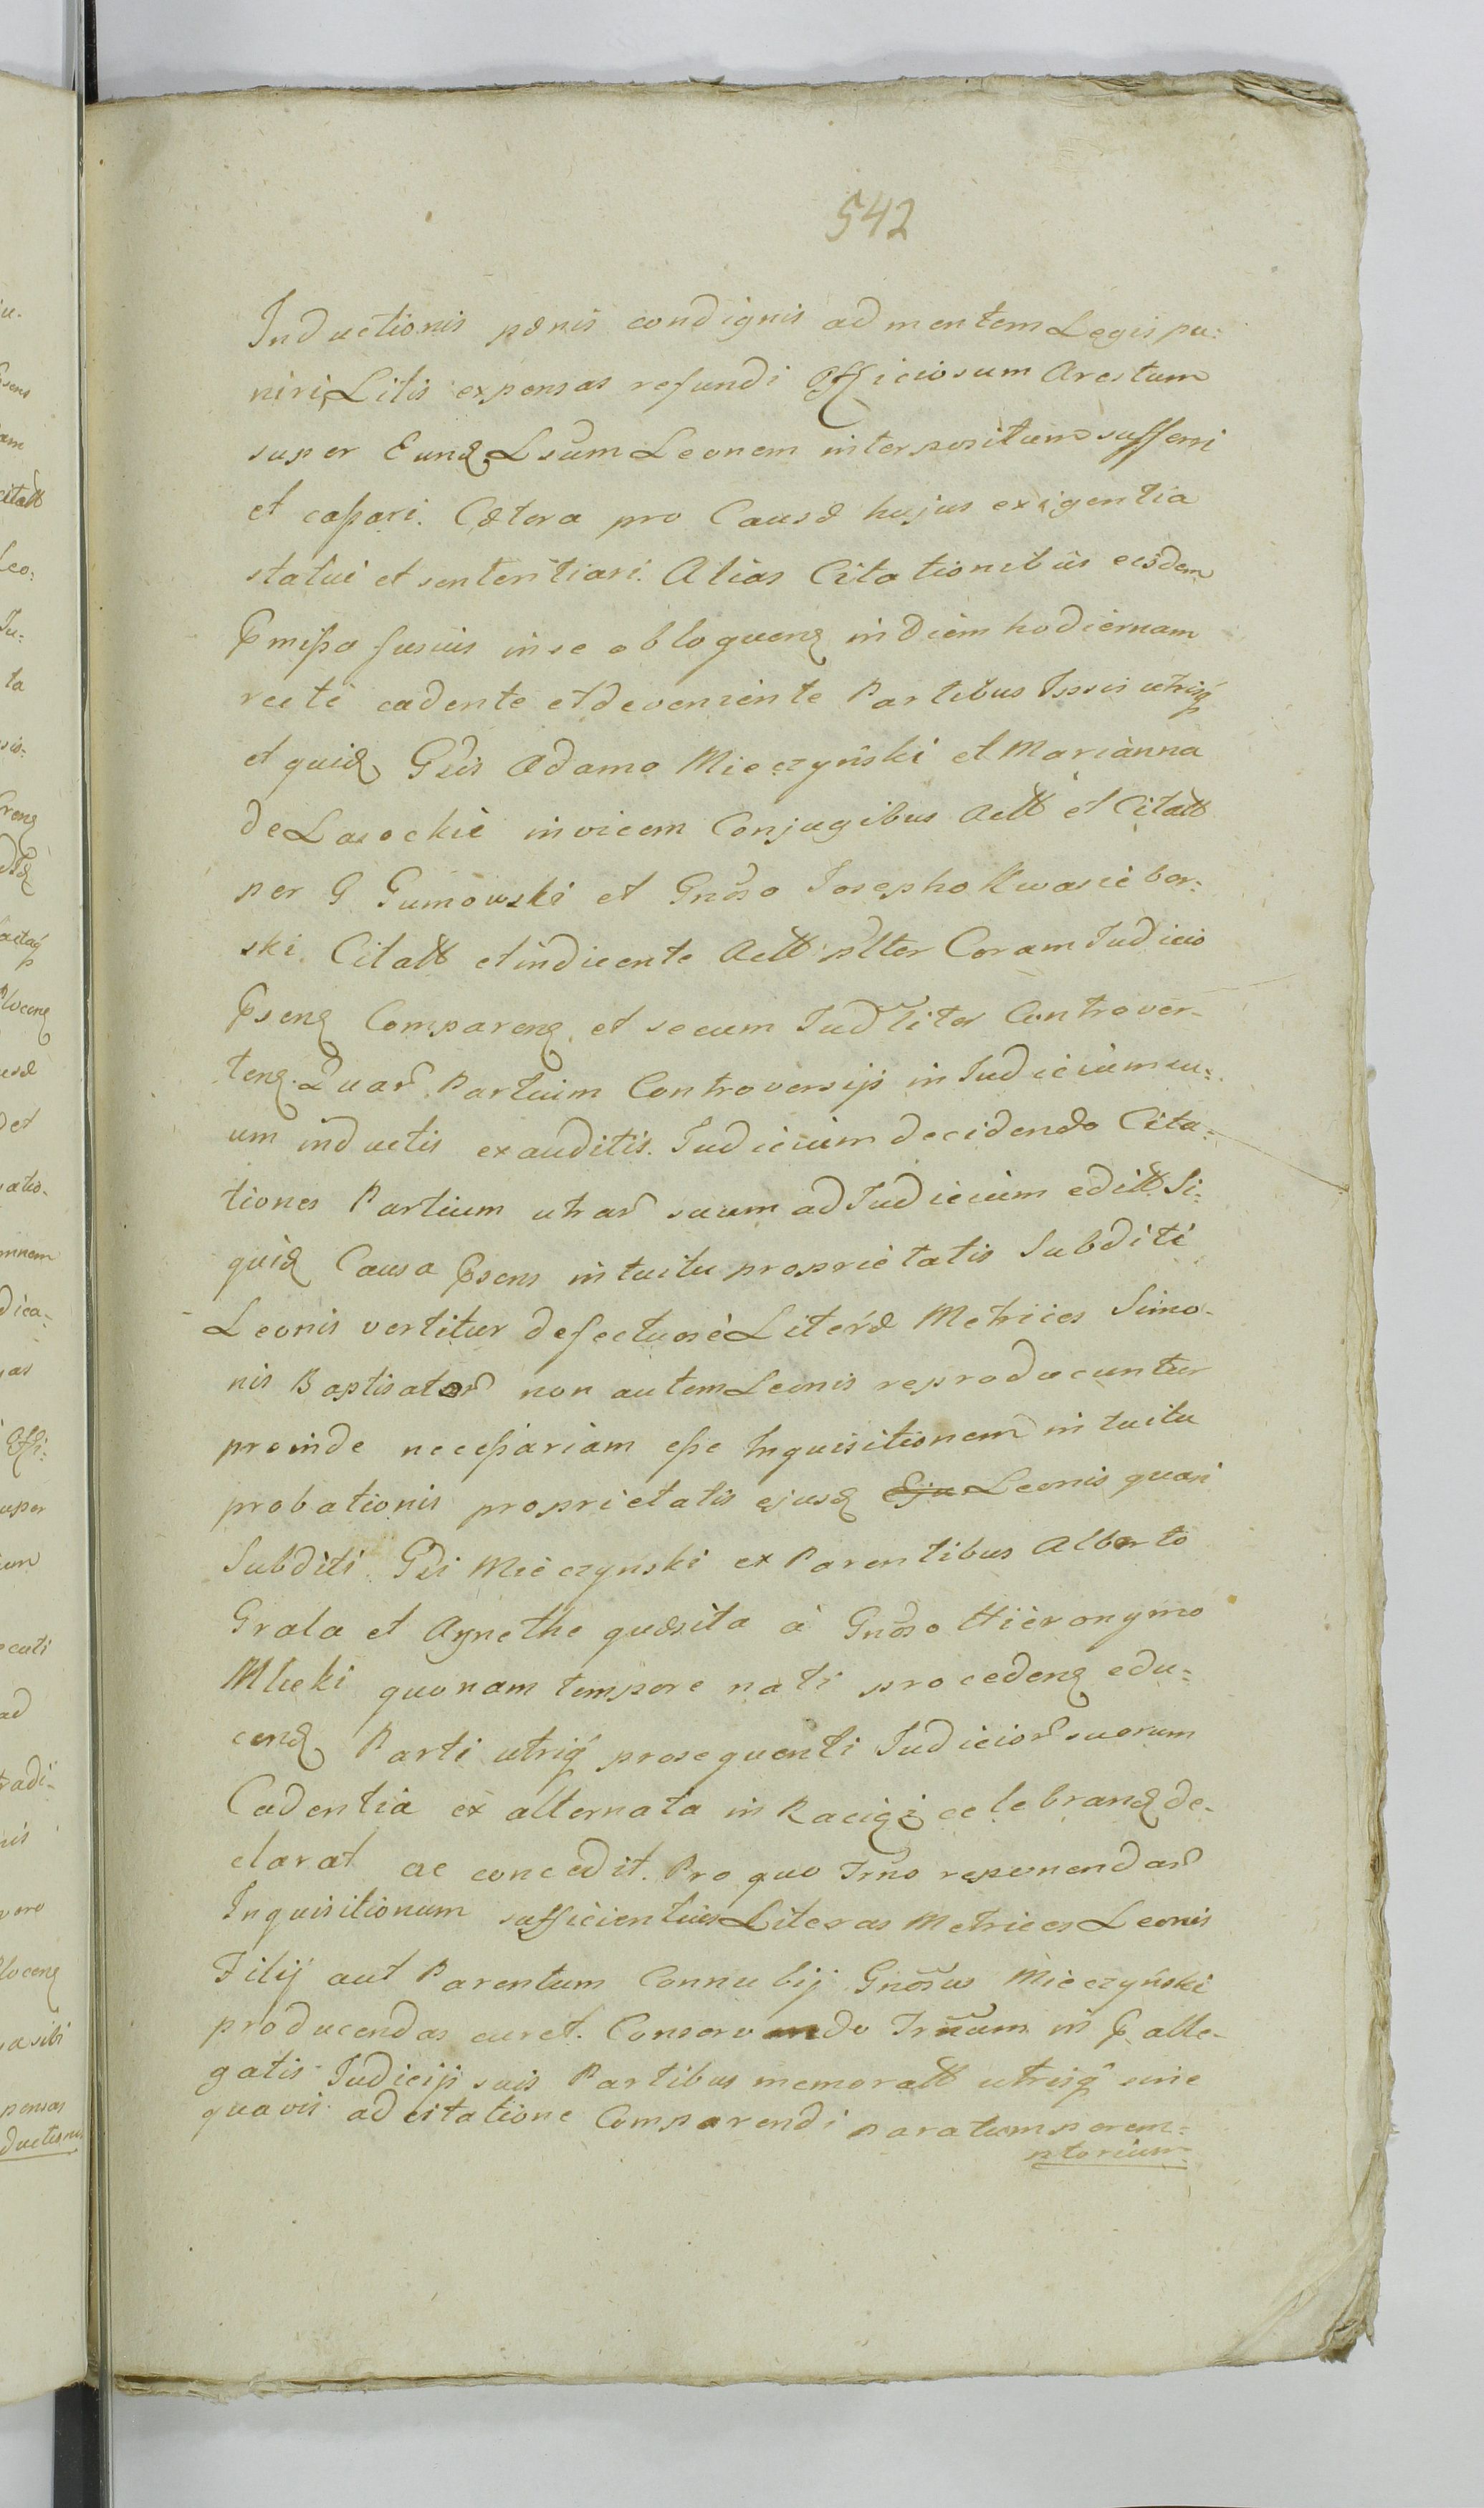 542
Inductionis pœnis condignis ad mentem Legis pu:
niri, Litis expensas refundi Officiosum Arestum
super Eundq Lsum Leonem interpositum sufferri
et cassari. Cætera pro Causæ hujus exigentia
statui et sententiari. Alias Citationibus eisdem
Pmissa fusius in se obloquenq in diem hodiernam
recte cadente et deveniente Partibus Ipsis utrisq
et quidq Gsis Adamo Mieczyński et Marianna
de Lasockie invicem Conjugibus Actt et Citatt
per G Gumowski et Gnoso Josepho Kwasiebor:
ski. Citatt et indicente Actt plter Coram Judicio
Psenq Comparenq et secum Judliter Controver-
tenq. Quar Partium Controversijs in Judicium su=
um inductis exauditis. Judicium decidendo Cita=
tiones Partium utrar suum ad Judicium editt. Si:
quidq Causa Psens intuitu proprietatis Subditi
Leonis vertitur defectuosè Literæ Metrices Simo-
nis Baptisator non autem Leonis reproducuntur
proinde necessariam esse Inquisitionem intuitu
probationis proprietatis ejusdq Eju Leonis quasi
Subditi Gsi Mieczynski ex Parentibus Alberto
Grala et Agnethe quæsita à Gnoso Hieronymo
Mlicki quonam tempore nati procedenq edu=
cenq Parti utriq prosequenti Judicior suorum
Cadentia ex alternata in Raciąż celebranq de-
clarat ac concedit. Pro quo Trno reponendar
Inquisitionum sufficientius Literas Metrices Leonis
Filij aut Parentum Connubij Gnosus Mieczyński
producendas curet. Conservando Trnum in P alle-
gatis Judicijs suis Partibus memoratt utrisq sine
quavis adcitatione Comparendi paratum perem=
ptorium